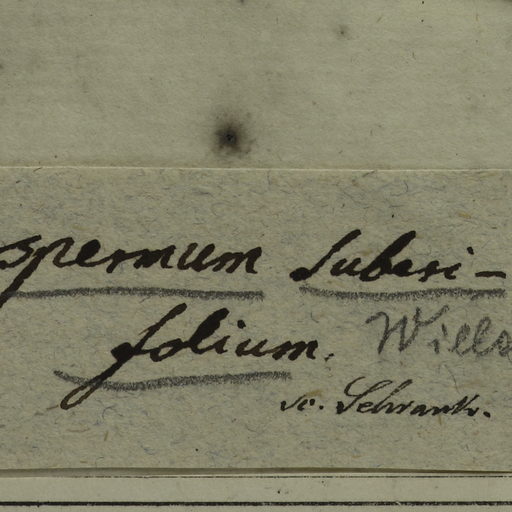 spermum suberi-
folium. Willd
sc. Schrank.